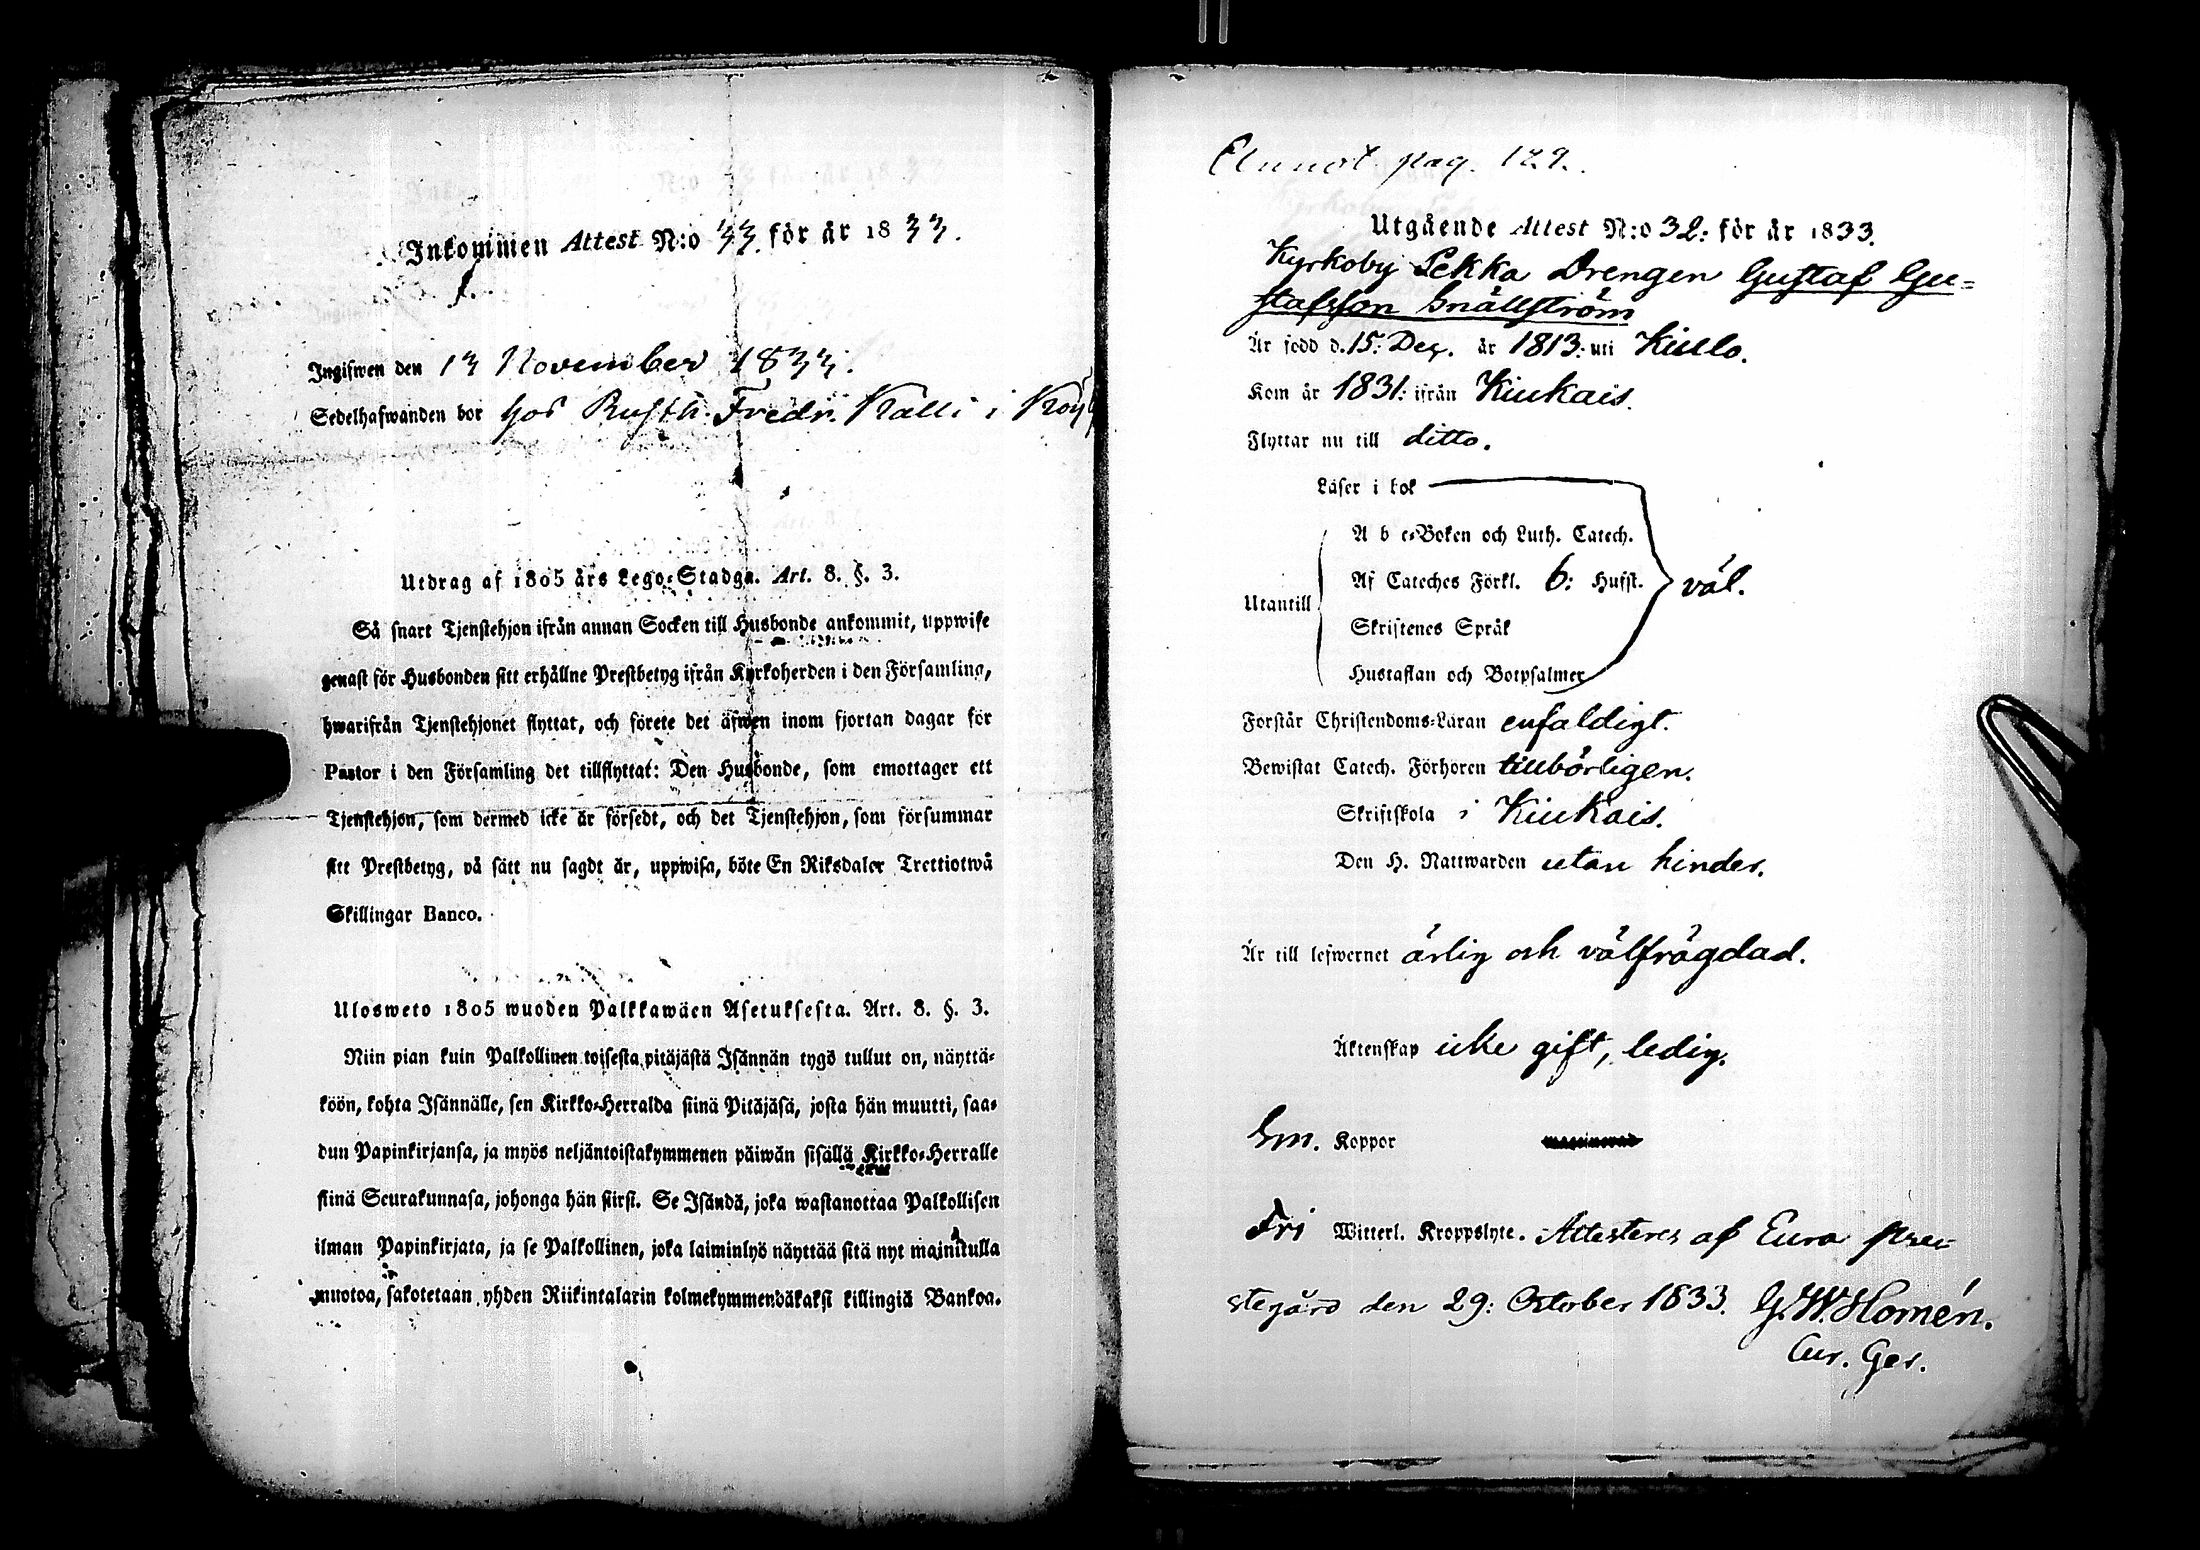 Inkommen Attest N:o 33. för år 1833.
Ingifwen den 13 November 1833.
Sedelhafwanden bor hos Rusth. Fredr. Kalli i
Utdrag af 1805 års Lego-Stadga. Art. 8. §. 3.
Så snart Tjenstehjon ifrån annan Socken till Husbonde ankommit, uppwise
genast för Husbonden sitt erhållne Prestbetyg ifrån Kyrkoherden i den Församling,
hwarifrån Tjenstehjonet flyttat, och förete det äfwen inom fjortan dagar för
Pastor i den Församling det tillflyttat: Den Husbonde, som emottager ett
Tjenstehjon, som dermed icke är försedt, och det Tjenstehjon, som försummar
sitt Prestbetyg, på sätt nu sagdt är, uppwisa, böte En Riksdaler Trettiotwå
Skillingar Banco.
Ulosweto 1805 wuoden Palkkawäen Asetuksesta. Art. 8. §. 3.
Niin pian kuin Palkollinen toisesta pitäjästä Isännän tygö tullut on, näyttä-
köön, kohta Isännälle, sen Kirkko-Herralda siinä Pitäjäsä, josta hän muutti, saa-
dun Papinkirjansa, ja myös neljäntoistakymmenen päiwän sisällä Kirkko-Herralle
siinä Seurakunnasa, johonga hän siirsi. Se Isändä, joka wastanottaa Palkollisen
ilman Papinkirjata, ja se Palkollinen, joka laiminlyö näyttää sitä nyt mainitulla
muotoa, sakotetaan yhden Riikintalarin kolmekymmendäkaksi killingiä Bankoa.
pag. 129.
Utgående Attest N:o 32: för år 1833.
Kyrkoby Sekka Drengen Gustaf Gu=
stafsson Snällström
Är född d. 15: Dec. år 1813: uti Kiulo.
Kom år 1831: ifrån Kiukais.
Flyttar nu till ditto.
Läser i bok
A b c-Boken och Luth. Catech.
Af Cateches Förkl. 6: Hufst. väl.
Utantill
Skriftenes Språk
Hustaflan och Botpsalmer
Förstår Christendoms-Läran enfaldigt.
Bewistat Catech. Förhören tillbörligen.
Skriftskola i Kiukais.
Den H. Nattwarden utan hinder.
Är till lefwernet ärlig och välfrägdad.
Äktenskap icke gift, ledig.
Sm. Koppor
Fri Witterl. Kroppslyte. Attesteres af Eura pre-
stegård den 29: October 1833. G.W. Homén.
Cur. Ger.